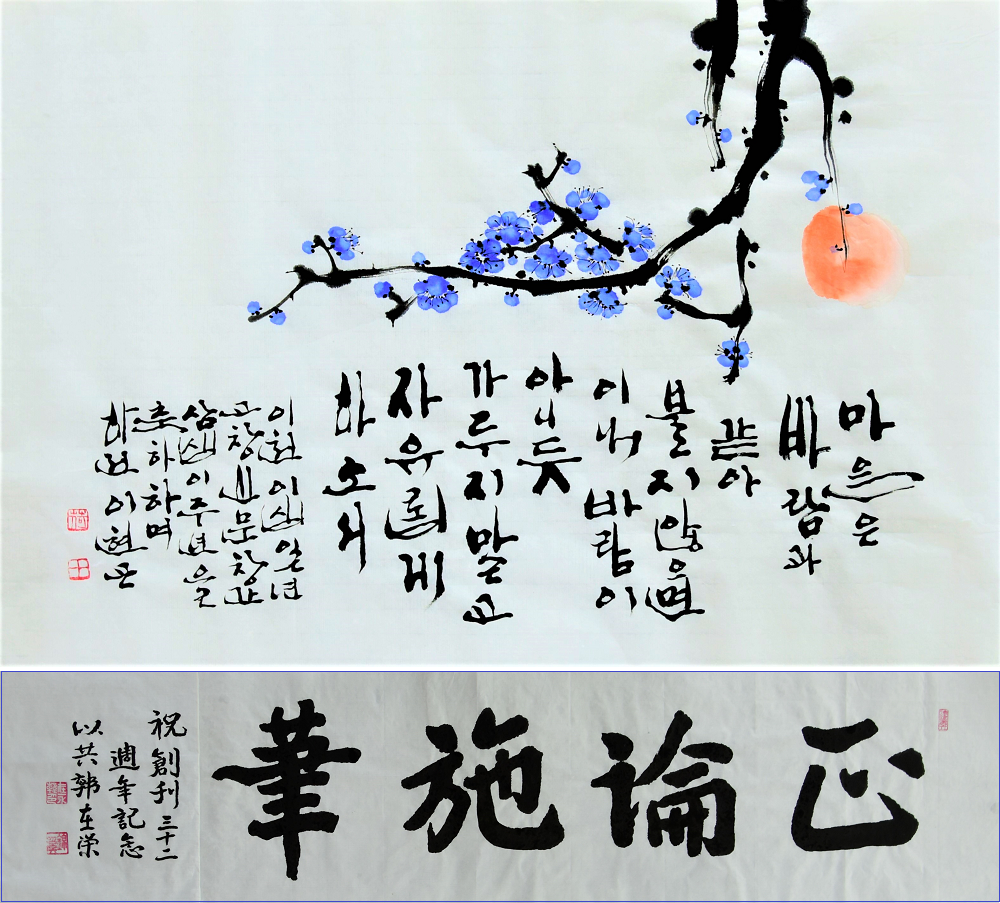 마음은
바람과
같아
불지 않으면
이내 바람이
아니듯
가두지 말고
자유롭게
하소서
이천 이십일년
고창신문창간
삼십이주년을
축하하며
正論施筆
祝創刊三十二
週年記念
以共郭在栄